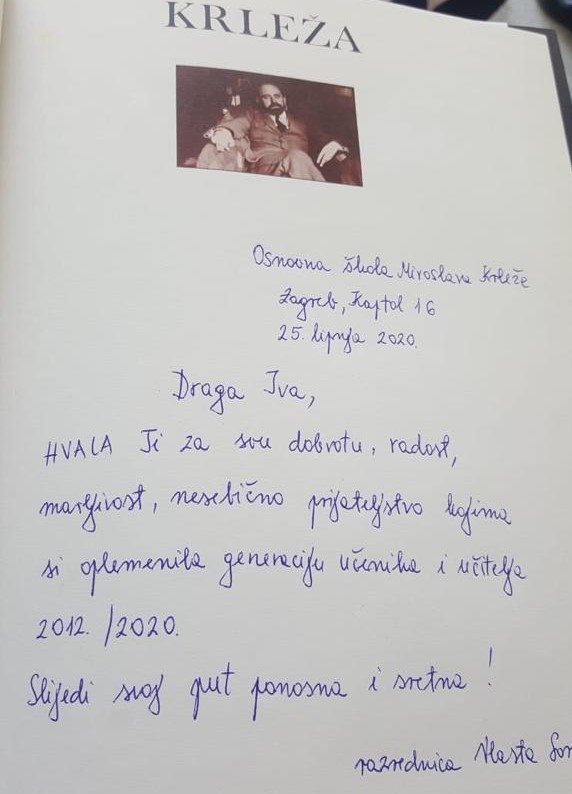 KRLEŽA
Osnovna škola Miroslava Krleže
Zagreb, Kaptol 16
25. lipnja 2020.
Draga Iva,
HVALA Ti za svu dobrotu, radost,
marljivost, nesebično prijateljstvo kojima
si oplemenila generaciju učenika i učitelja
2012./2020.
Slijedi svoj put ponosna i sretna!
razrednica Vlasta